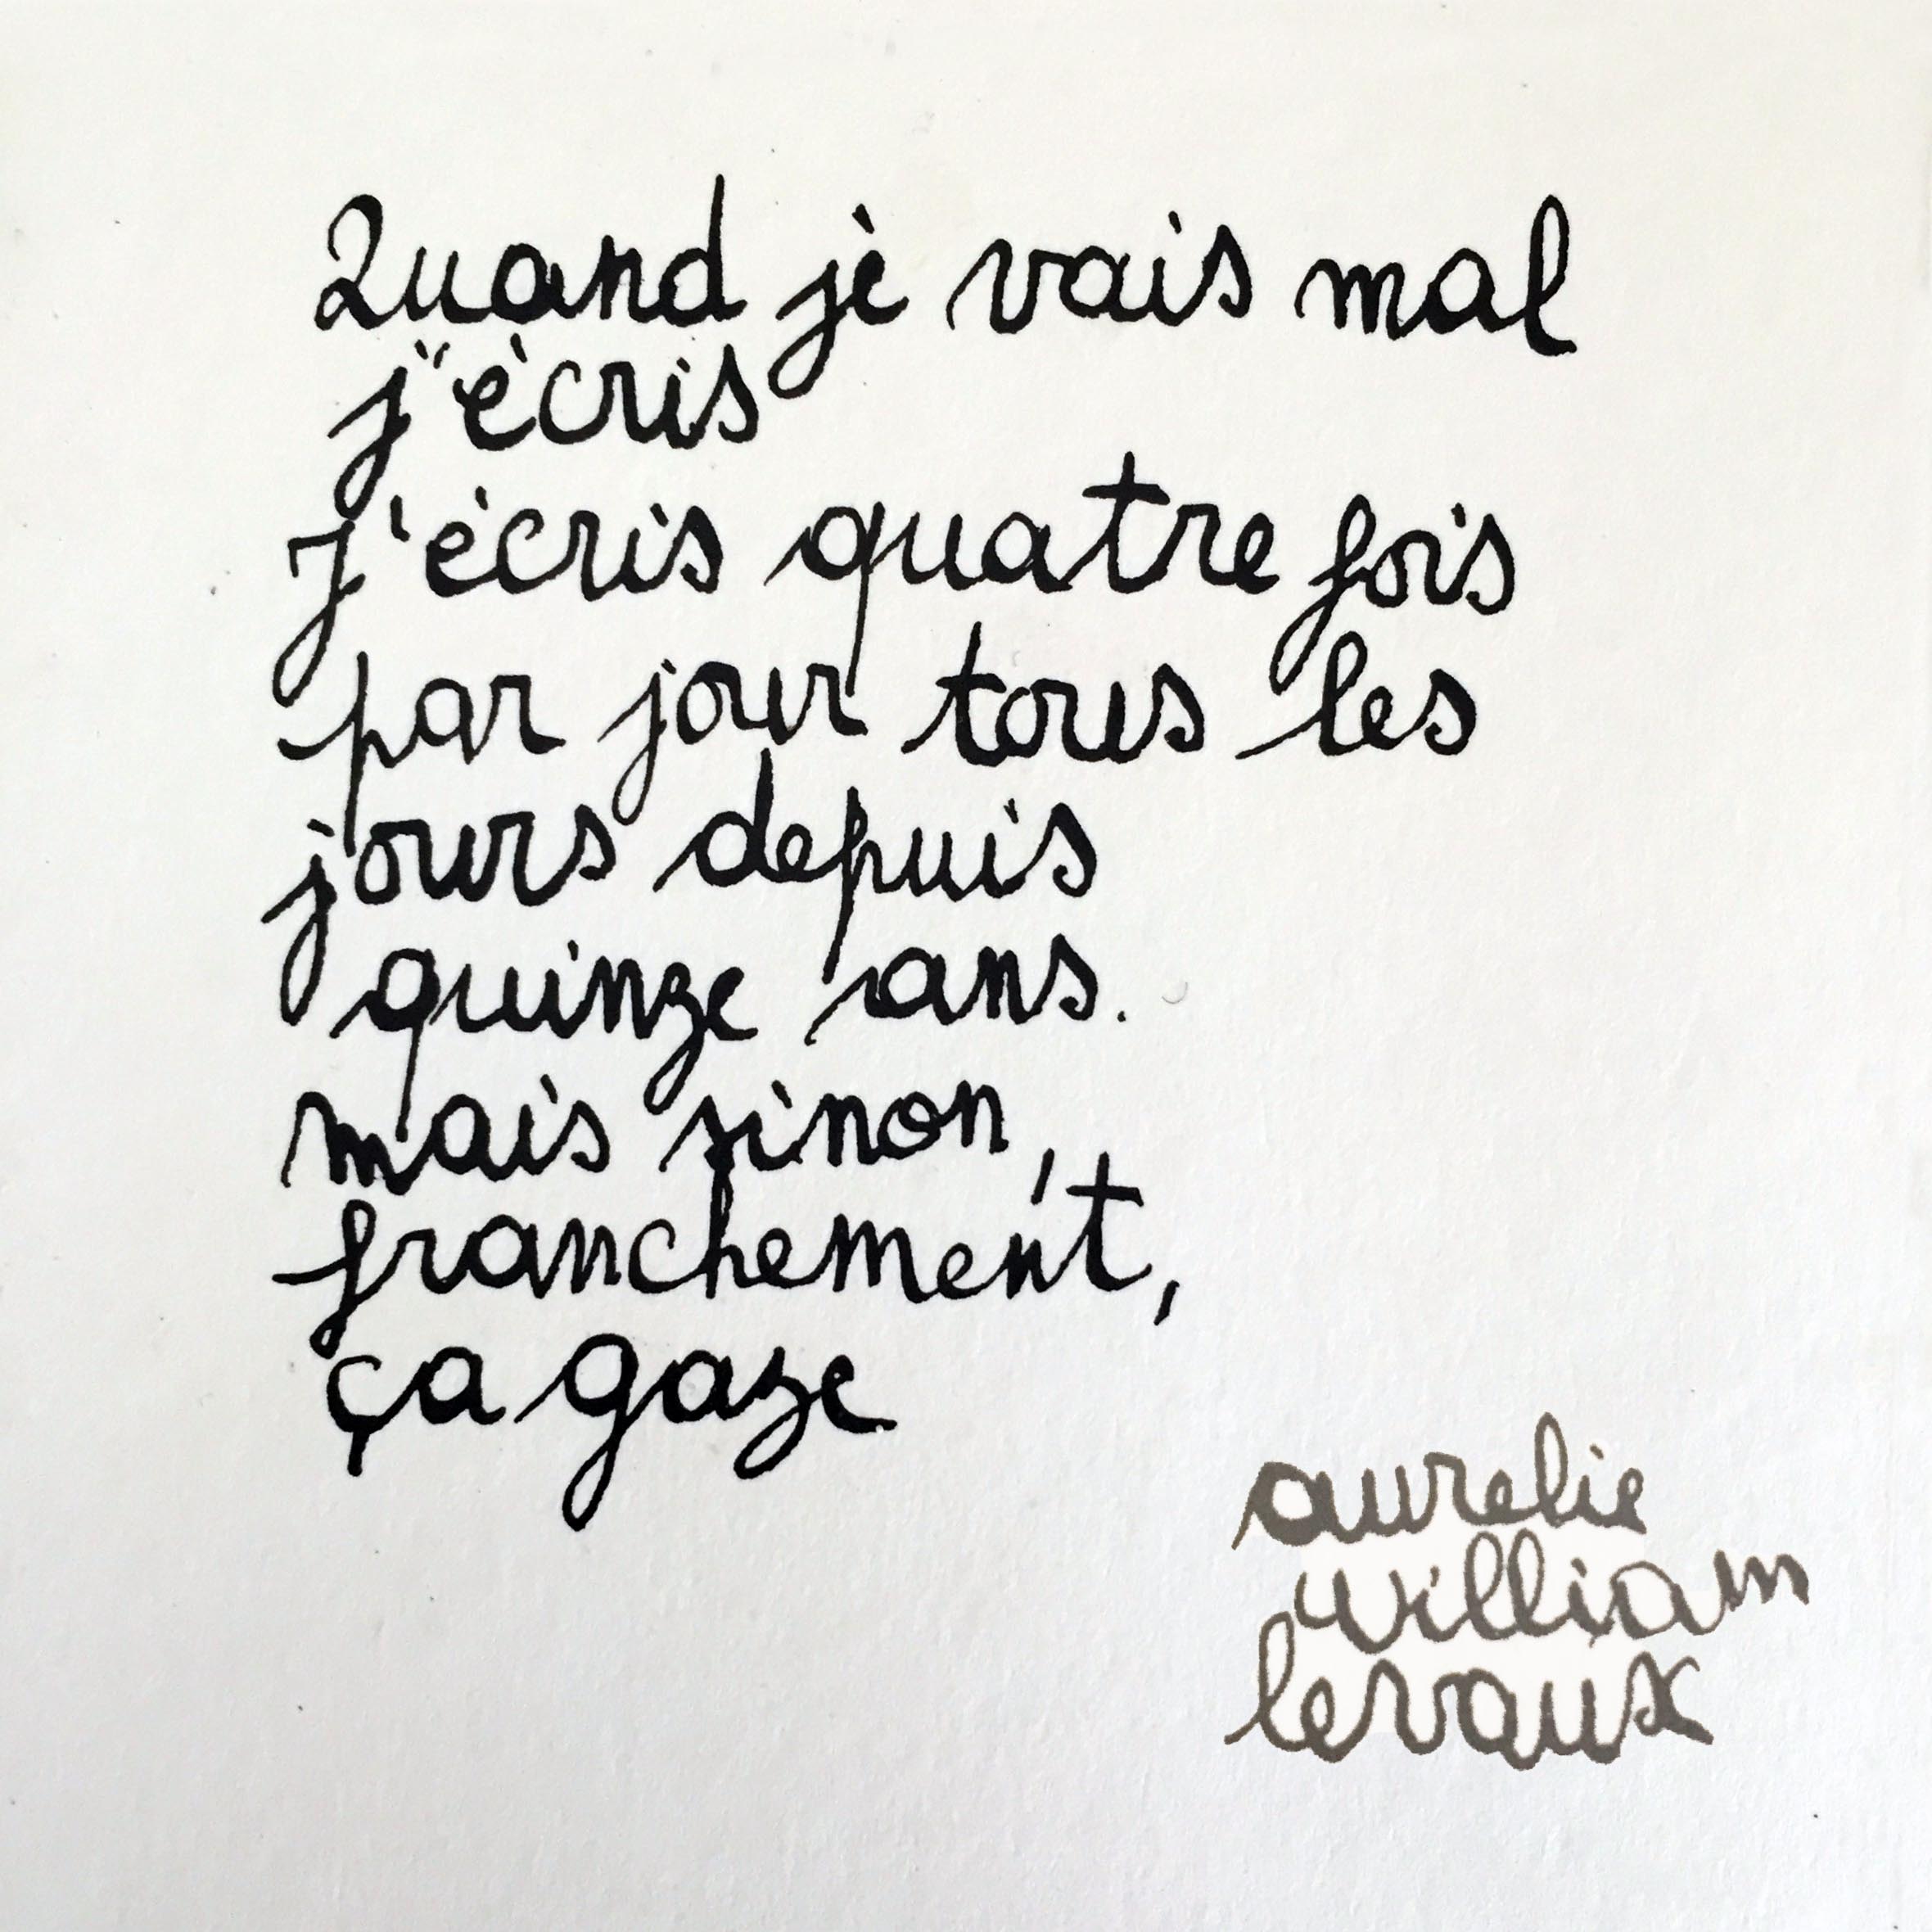 Quand je vais mal
j'écris
J'écris quatre fois
par jour tous les
jours depuis
quinze ans.
mais sinon,
franchement,
ça gaze
aurelie
william
levaux